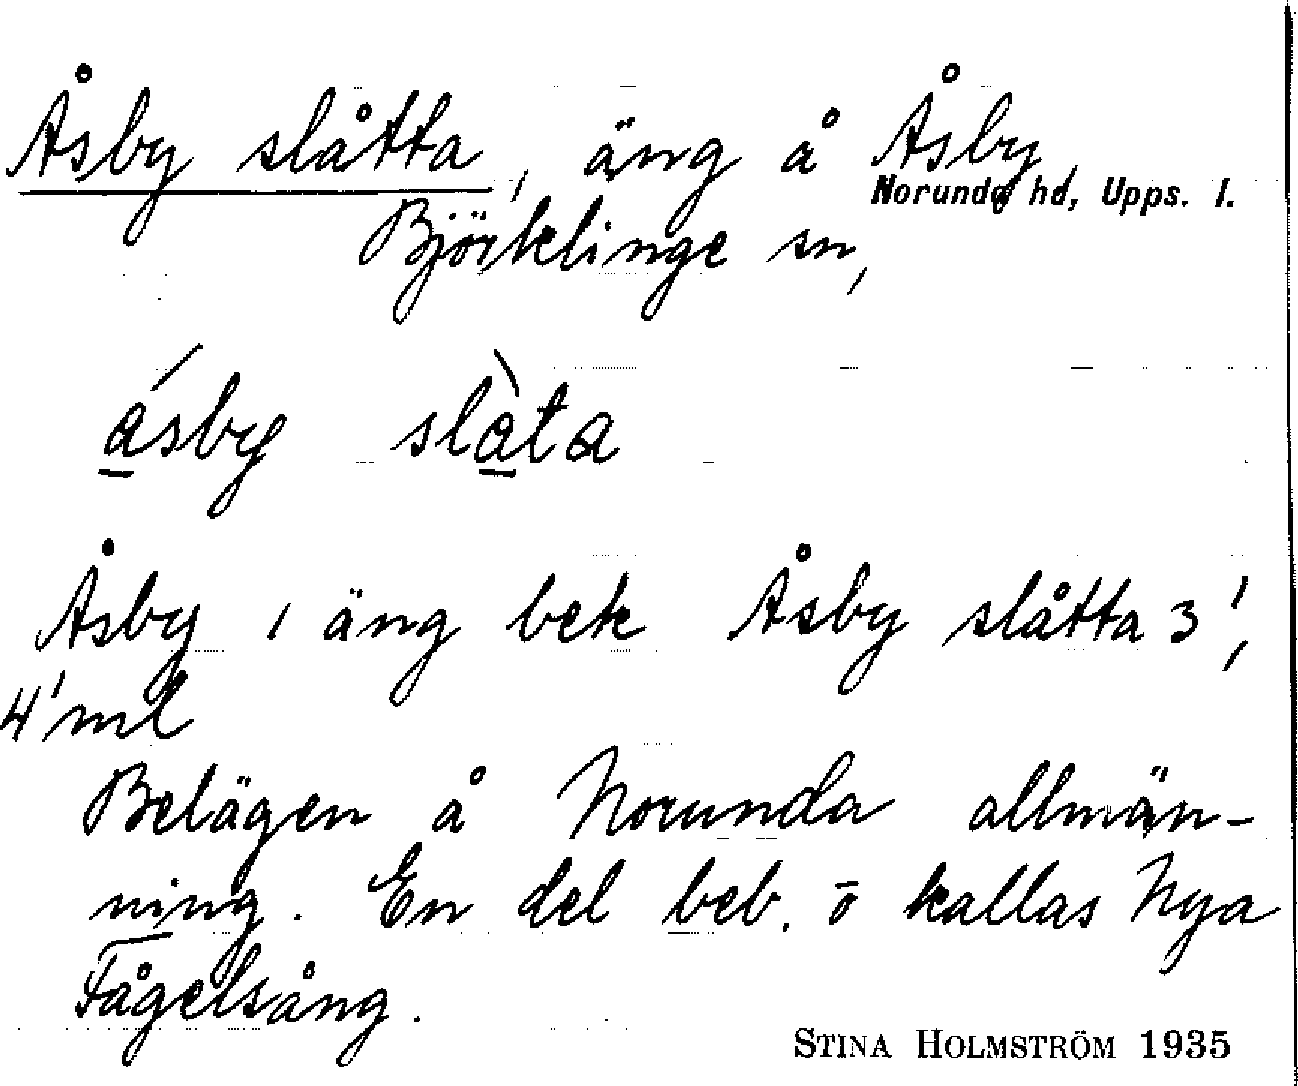 Åsby slåtta, äng å Åsby,
Norunda hd, Upps. l.
Björklinge sn,
á̲sby slà̲ta
Åsby, äng bek Åsby slåtta 3',
4' ml
Belägen å Norunda allmän-
ning. En del beb. o kallas Nya
Fågelsång.
STINA HOLMSTRÖM 1935